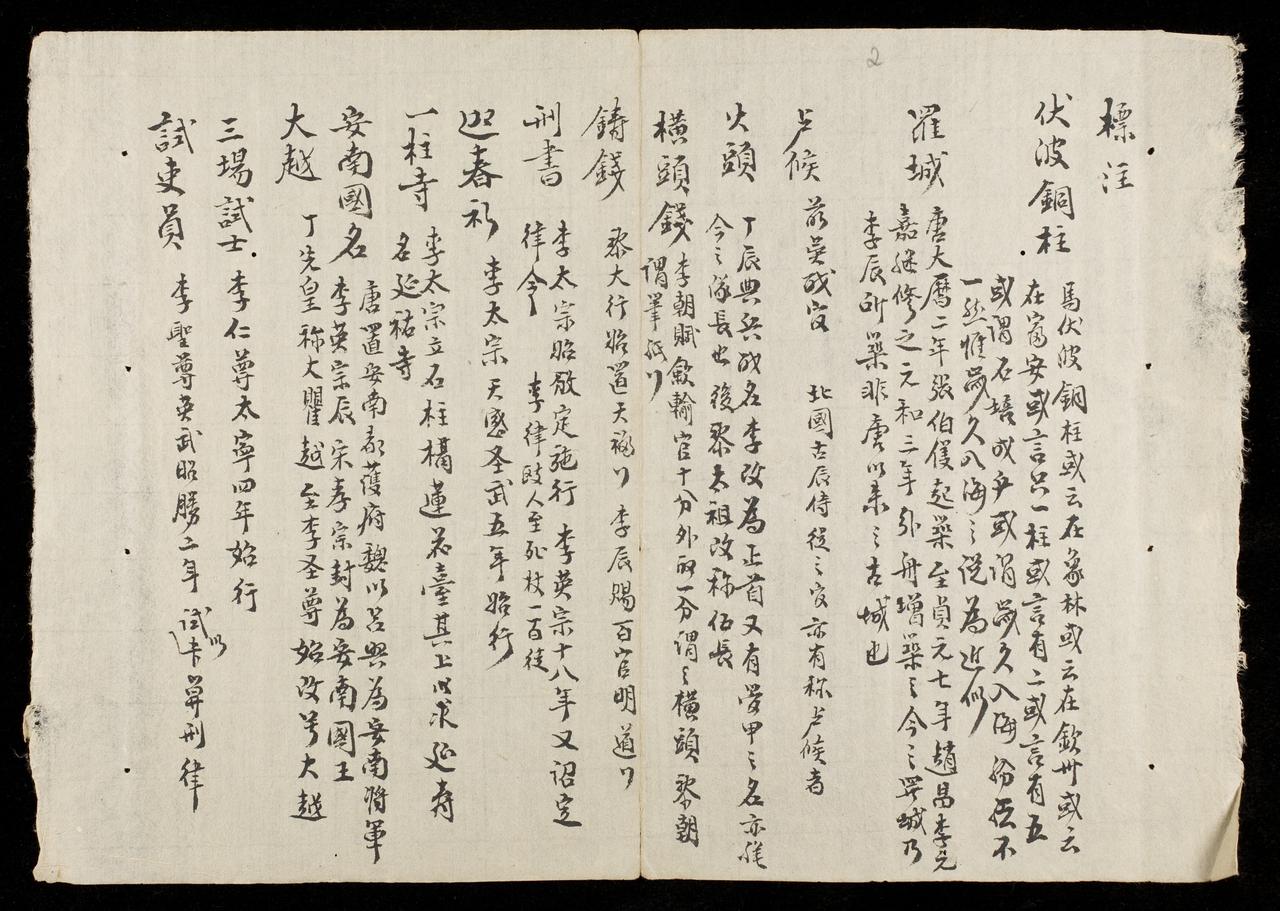 2
標注
伏波銅柱 馬伏波銅柱或云在象林或云在欽州或云
在富安或言只一柱或言有二或言有五
或謂石培成戶或謂歲久入海紛紜不
一然惟歲久入海之説為近似
羅城 唐大曆二年張伯儀起築至貞元七年趙昌李元
嘉継修之元和三年 舟增築之今之羅城乃
李辰所築非唐以来之古城也
占候 前吳戍官 北國古辰侍從之官亦有称占候者
火頭 丁辰典兵戍名李改為正首又有管甲之名亦猶
今之隊長也後黎太祖改称伍長
橫頭錢 李朝賦歛輸官十分外取一分謂之橫頭黎朝
謂筆紙
鑄錢 黎大行始置天福 李辰賜百官明道
刑書 李太宗始啟定施行 李英宗十八年又詔定
律令 李律毆人至死杖一百徒
迎春礼 李太宗天感圣武五年始行
一柱寺 李太宗立石柱構蓮花臺其上以求延壽
名延祐寺
安南國名 唐置安南都護府魏以呂興為安南將軍
李英宗辰宋孝宗封為安南國王
大越 丁先皇称大瞿越至李圣尊始改号大越
三場試士 李仁尊太寧四年始行
試吏員 李聖尊英武昭勝二年試以 筭刑律